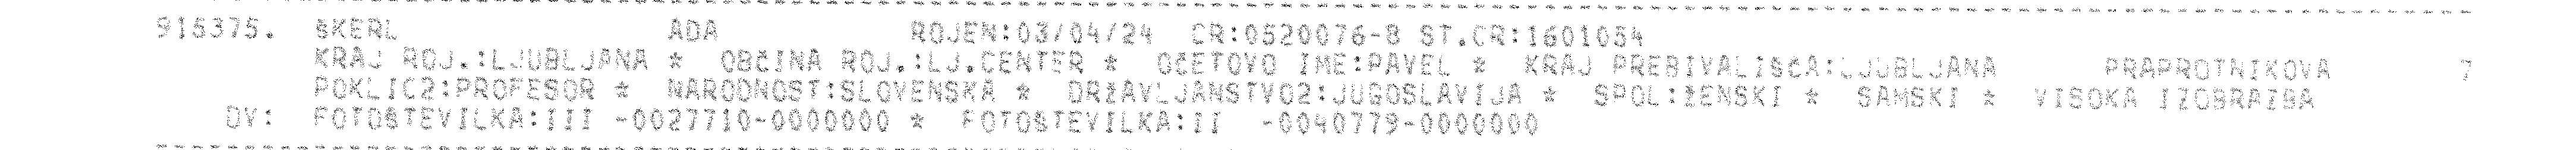 915375. ŠKERL ADA ROJEN:03/04/24 CR:0520076-8 ST.CR:1601054
KRAJ ROJ.:LJUBLJANA * OBČINA ROJ.:LJ.CENTER * OČETOVO IME:PAVEL * KRAJ PREBIVALIŠČA:LJUBLJANA PRAPROTNIKOVA 7
POKLIC2:PROFESOR * NARODNOST:SLOVENSKA * DRŽAVLJANSTVO2:JUGOSLAVIJA * SPOL:ŽENSKI * SAMSKI * VISOKA IZOBRAZBA
DV: FOTOŠTEVILKA:III -0027710-0000000 * FOTOŠTEVILKA:II -0040779-0000000